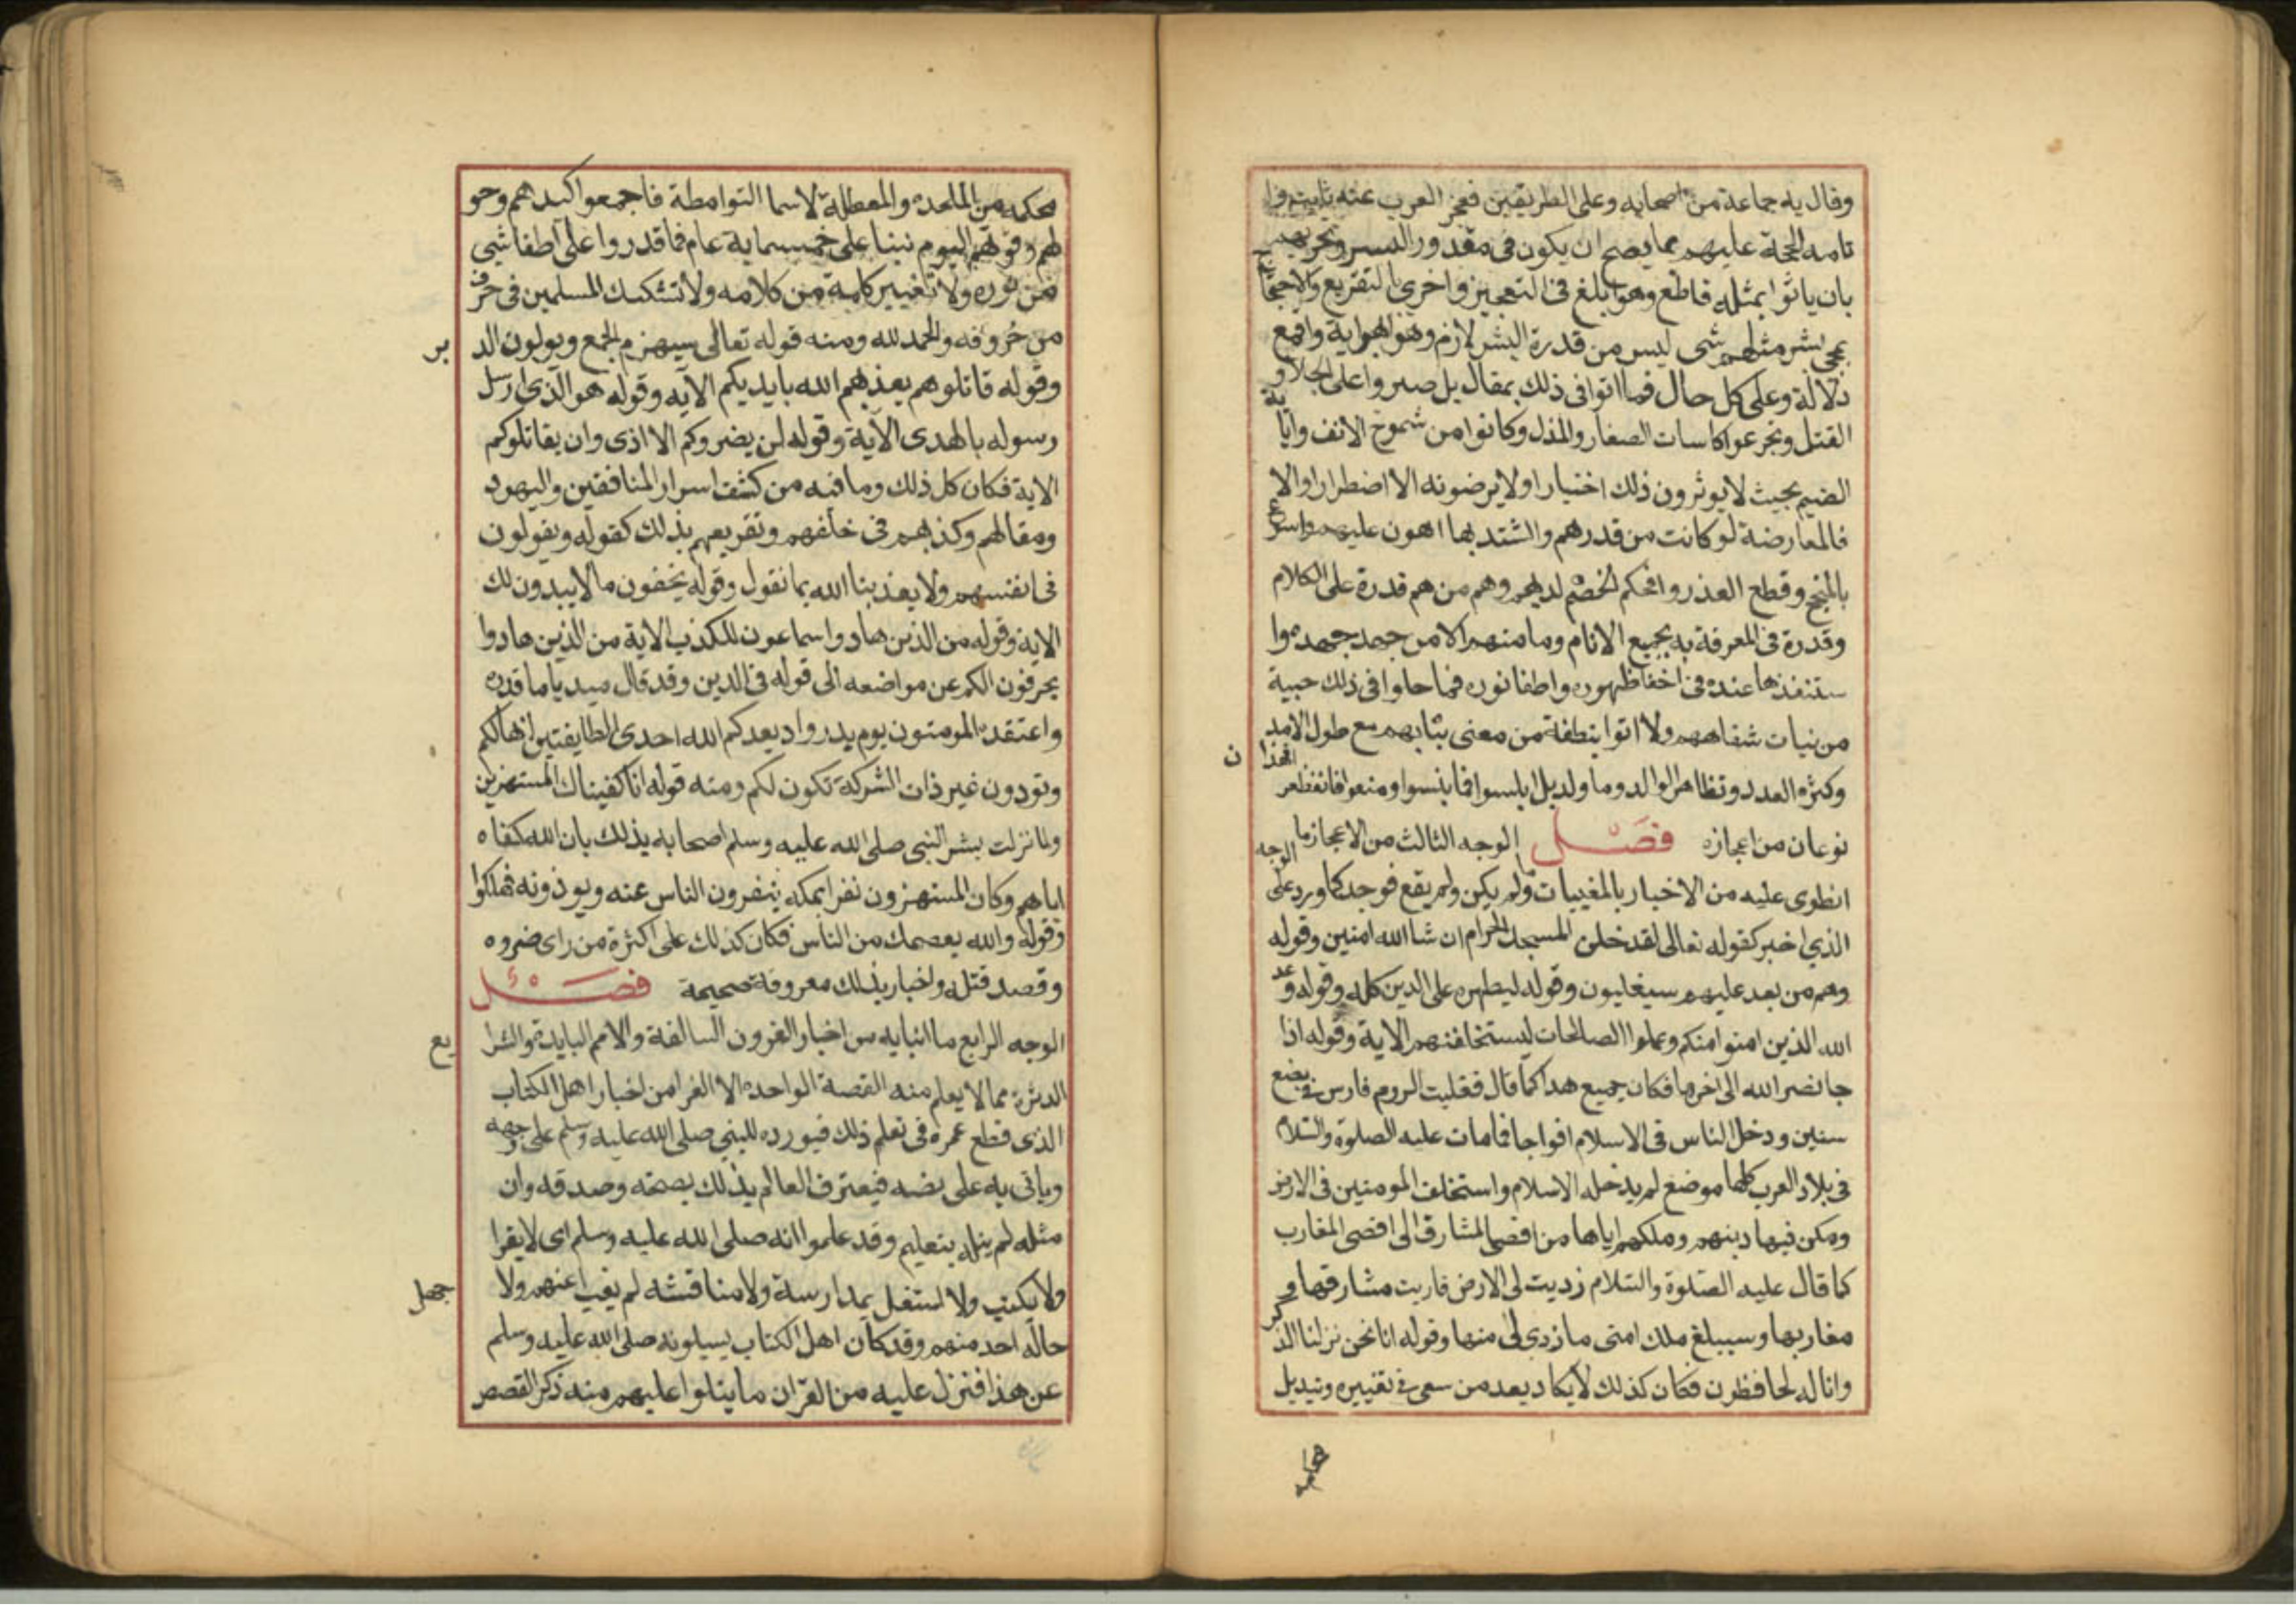 وقال به جماعة من اصحابه وعلى الطريقين فعجز العرب عنه ثابت واقا
نامه الحجة عليهم بما يصح ان يكون فى مقدور البشر وتحديهم
بان ياتوا بمثله قاطع وهو ابلغ فى التعجيز واحرى بالتقريع والاحتجاج
بمجى بشر مثلهم بشى ليس من قدرة البشر لازم وهو ابهر اية واقمع
دلالة وعلى كل حال فما اتوا فى ذلك بمقال بل صبروا على الجلا و
القتل وتجرعوا كاسات الصغار والذل وكانوا من شموخ الانف واباية
الضيم بحيث لا يوثرون ذلك اختيارا ولا يرضونه الا اضطرارا والا
فالمعارضة لو كانت من قدرهم والشتد بها اهون عليهم واسرع
بالنجح وقطع العذر وافحام الخصم لديهم وهم من هم قدرة على الكلام
وقدرة فى المعرفة به بجميع الانام وما منهم الا من جهد جهده وا
ستنفذ ما عنده فى اخفا ظهوره واطفا نوره فما جلوا فى ذلك حبية
من بنيات شفاههم ولا اتوا بنطفة من معنى مياههم مع طول الامد
وكثرة العدد وتظاهر الوالد وما ولد بل ابلسوا فما نبسوا ومنعوا فانقطعوا فهذا ن
نوعان من اعجازه فصل الوجه الثالث من الاعجاز ما
انطوى عليه من الاخبار بالمغيبات وما لم يكن ولم يقع فوجد كما ورد على الوجه
الذي اخبر كقوله تعالى لتدخلن المسجد الحرام ان شا الله امنين وقوله
وهم من بعد غلبهم سيغلبون وقوله ليظهره على الدين كله وقوله وعد
الله الذين امنوا منكم وعملوا الصالحات ليستخلفنهم الاية وقوله اذا
جا نصر الله الى اخرها فكان جميع هذا كما قال فغلبت الروم فارس فى بضع
سنين ودخل الناس فى الاسلام افواجا فما مات عليه الصلوة والسلام
فى بلاد العرب كلها موضع لم يدخله الاسلام واستخلف المومنين فى الارض
ومكن فيها دينهم وملكهم اياها من اقصى المشارق الى اقصى المغارب
كما قال عليه الصلوة والسلام زويت لى الارض فاريت مشارقها و
مغاربها وسيبلغ ملك امتى ما زوي لى منها وقوله انا نحن نزلنا الذكر
وانا له لحافظون فكان كذلك لا يكاد يعد من سعى فى تغييره وتبديل
محكمه من الملحدة والمعطلة لاسيما القرامطة فاجمعوا كيدهم وحو
لهم وقوتهم اليوم نيفا على خمسماية عام فما قدروا على اطفا شى
من نوره ولا تغيير كلمة من كلامه ولا تشكيك المسلمين فى حرف
من حروفه والحمد لله ومنه قوله تعالى سيهزم الجمع ويولون الد بر
وقوله قاتلوهم يعذبهم الله بايديكم الاية وقوله هو الذي ارسل
رسوله بالهدى الاية وقوله لن يضروكم الا اذى وان يقاتلوكم
الاية فكان كل ذلك وما فيه من كشف اسرار المنافقين واليهود
ومقالهم وكذبهم فى حلفهم وتقريعهم بذلك كقوله ويقولون
فى انفسهم لولا يعذبنا الله بما نقول وقوله يخفون ما لا يبدون لك
الاية وقوله من الذين هادوا سماعون للكذب الاية من الذين هادوا
يحرفون الكلم عن مواضعه الى قوله فى الدين وقد قال مبديا ما قدره
واعتقده المومنون يوم بدر واذ يعدكم الله احدى الطايفتين انها لكم
وتودون ان غير ذات الشوكة تكون لكم ومنه قوله انا كفيناك المستهزين
ولما نزلت بشر النبى صلى الله عليه وسلم اصحابه بذلك بان الله كفاه
اياهم وكان المستهزون نفرا بمكه ينفرون الناس عنه ويوذونه فهلكوا
وقوله والله يعصمك من الناس فكان كذلك على كثرة من راى ضره
وقصد قتله والاخبار بذلك معروفة صحيحة فصل
الوجه الرابع ما انبا به من اخبار القرون السالفة والامم البايدة والشرا يع
الدثرة مما لا يعلم منه القصة الواحدة الا الفذ من اخبار اهل الكتاب
الذى قطع عمره فى تعلم ذلك فيورده النبى صلى الله عليه وسلم على وجهه
وياتى به على نصه فيعترف العالم بذلك بصحته وصدقه وان
مثله لم ينله بتعليم وقد علموا انه صلى الله عليه وسلم امى لا يقرا
ولا يكتب ولا اشتغل بمدارسة ولا مناقشه لم يغب عنهم ولا جهل
حاله احد منهم وقد كان اهل الكتاب يسيلونه صلى الله عليه وسلم
عن هذا فنزل عليه من القران ما يتلوا عليهم منه ذكرا كقصص